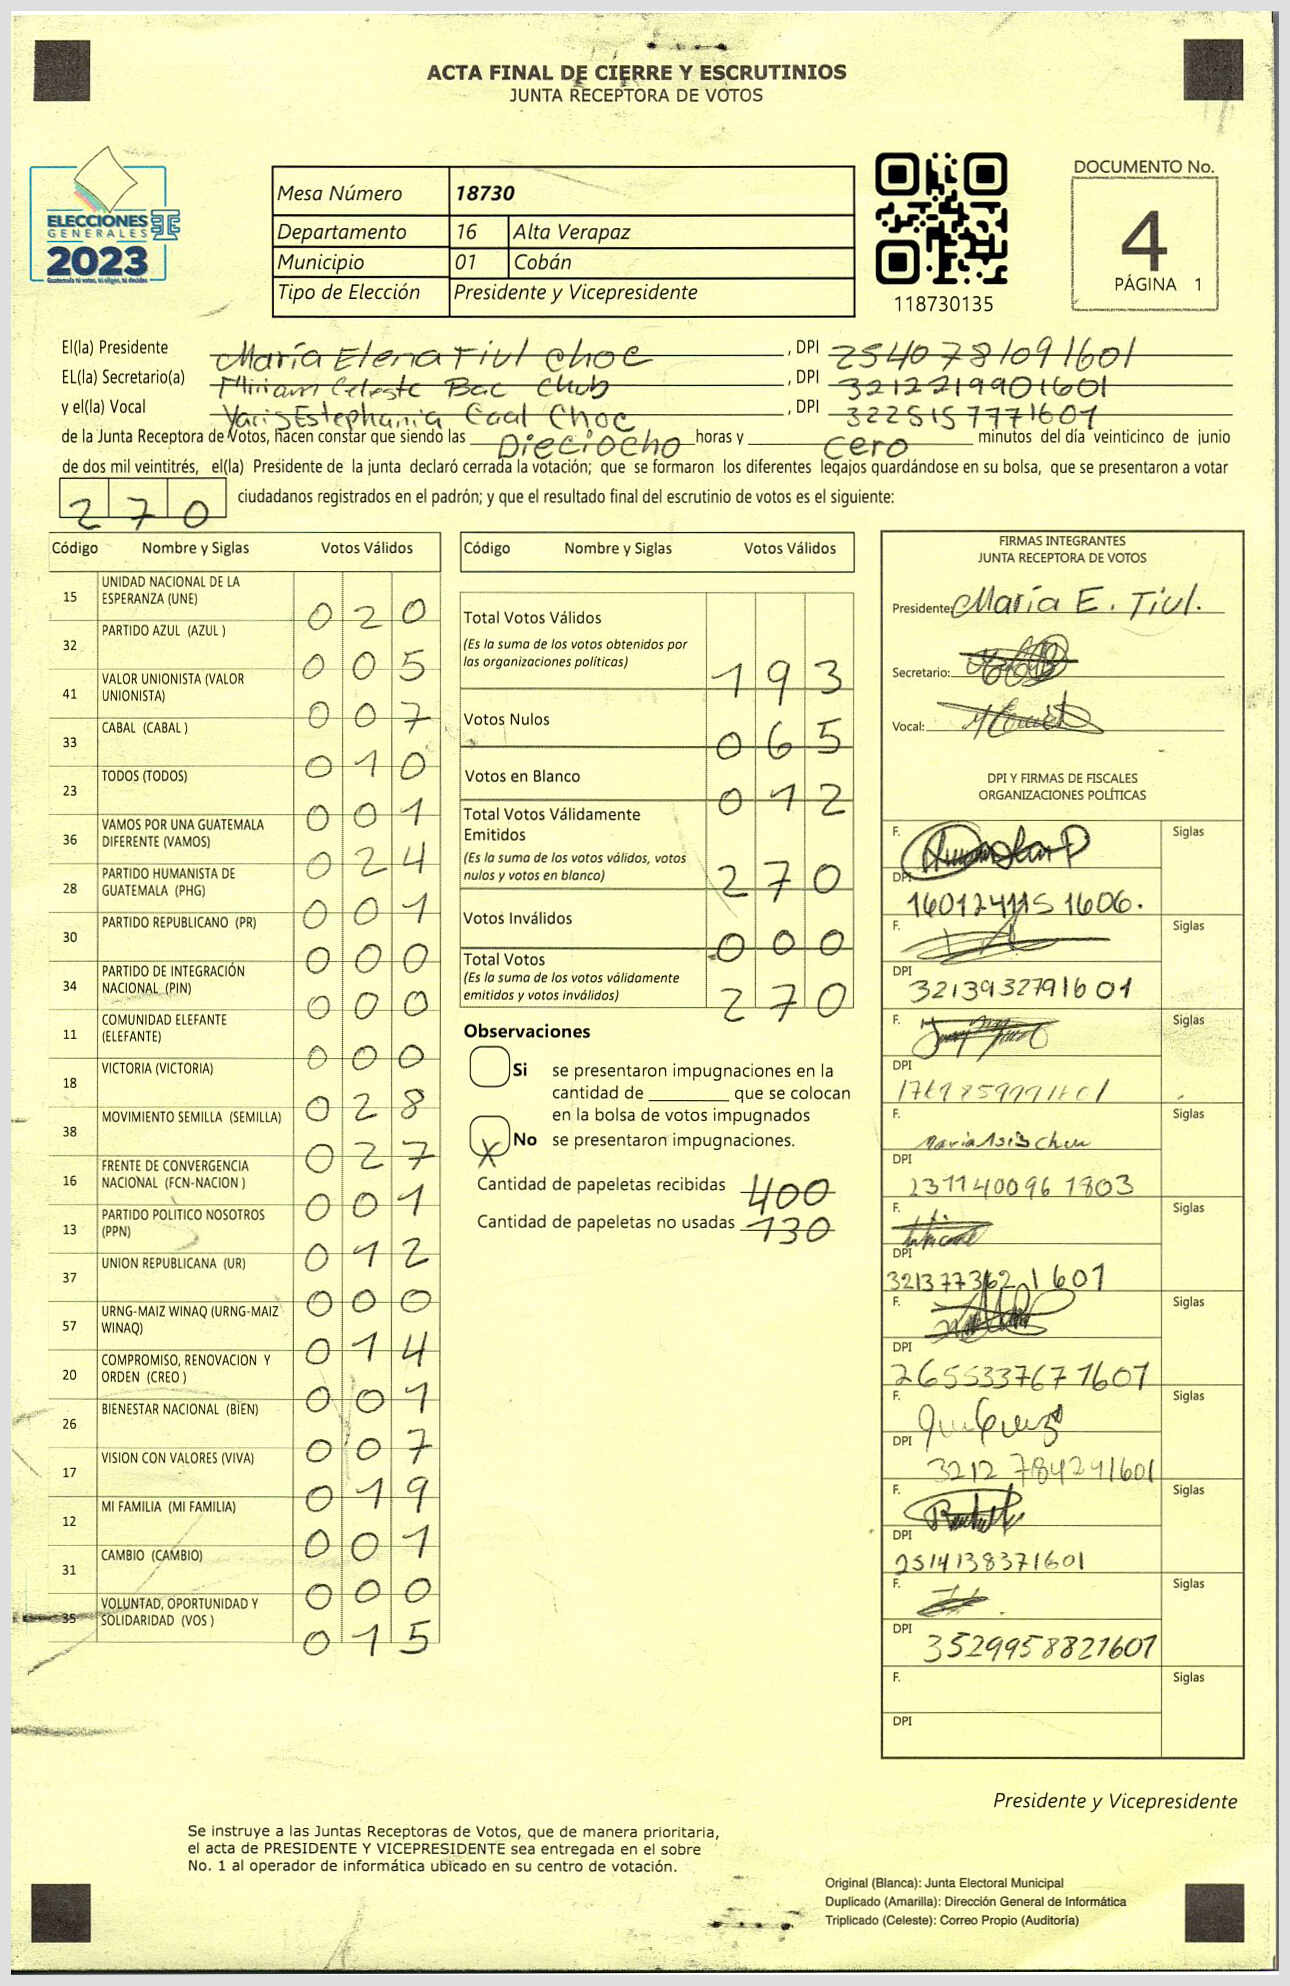 ACTA FINAL DE CIERRE Y ESCRUTINIOS
JUNTA RECEPTORA DE VOTOS
ELECCIONES
GENERALES
2023
Guatemala tú votas, tú eliges, tú decides
Mesa Número 18730
Departamento 16 Alta Verapaz
Municipio 01 Cobán
Tipo de Elección Presidente y Vicepresidente
118730135
DOCUMENTO No.
4
PÁGINA 1
El(la) Presidente María Elena Tiul Choc, DPI 2540781091601
EL(la) Secretario(a) Miriam Celeste Bac Chub, DPI 3212219901601
y el(la) Vocal Yaris Estephania Caal Choc, DPI 3225157771601
de la Junta Receptora de Votos, hacen constar que siendo las Dieciocho horas y cero minutos del día veinticinco de junio
de dos mil veintitrés, el(la) Presidente de la junta declaró cerrada la votación; que se formaron los diferentes legajos guardándose en su bolsa, que se presentaron a votar
270 ciudadanos registrados en el padrón; y que el resultado final del escrutinio de votos es el siguiente:
Código Nombre y Siglas Votos Válidos
15 UNIDAD NACIONAL DE LA ESPERANZA (UNE) 020
32 PARTIDO AZUL (AZUL ) 005
41 VALOR UNIONISTA (VALOR UNIONISTA) 007
33 CABAL (CABAL ) 010
23 TODOS (TODOS) 001
36 VAMOS POR UNA GUATEMALA DIFERENTE (VAMOS) 024
28 PARTIDO HUMANISTA DE GUATEMALA (PHG) 001
30 PARTIDO REPUBLICANO (PR) 000
34 PARTIDO DE INTEGRACIÓN NACIONAL (PIN) 000
11 COMUNIDAD ELEFANTE (ELEFANTE) 000
18 VICTORIA (VICTORIA) 028
38 MOVIMIENTO SEMILLA (SEMILLA) 027
16 FRENTE DE CONVERGENCIA NACIONAL (FCN-NACION ) 001
13 PARTIDO POLITICO NOSOTROS (PPN) 012
37 UNION REPUBLICANA (UR) 000
57 URNG-MAIZ WINAQ (URNG-MAIZ WINAQ) 014
20 COMPROMISO, RENOVACION Y ORDEN (CREO ) 001
26 BIENESTAR NACIONAL (BIEN) 007
17 VISION CON VALORES (VIVA) 019
12 MI FAMILIA (MI FAMILIA) 001
31 CAMBIO (CAMBIO) 000
35 VOLUNTAD, OPORTUNIDAD Y SOLIDARIDAD (VOS ) 015
Código Nombre y Siglas Votos Válidos
Total Votos Válidos
(Es la suma de los votos obtenidos por
las organizaciones políticas) 193
Votos Nulos 065
Votos en Blanco 012
Total Votos Válidamente
Emitidos
(Es la suma de los votos válidos, votos
nulos y votos en blanco) 270
Votos Inválidos 000
Total Votos
(Es la suma de los votos válidamente
emitidos y votos inválidos) 270
Observaciones
Si se presentaron impugnaciones en la
cantidad de ________ que se colocan
en la bolsa de votos impugnados
X No se presentaron impugnaciones.
Cantidad de papeletas recibidas 400
Cantidad de papeletas no usadas 130
FIRMAS INTEGRANTES
JUNTA RECEPTORA DE VOTOS
Presidente: María E. Tiul.
Secretario:
Vocal:
DPI Y FIRMAS DE FISCALES
ORGANIZACIONES POLÍTICAS
F. Siglas
DPI 1601241151606.
F. Siglas
DPI 3213932791601
F. Siglas
DPI
F. Siglas
DPI 2311400961803
F. Siglas
DPI 3213773621601
F. Siglas
DPI 2655337671601
F. Siglas
DPI 3212784241601
F. Siglas
DPI 2514138371601
F. Siglas
DPI 3529958821601
F. Siglas
DPI
Presidente y Vicepresidente
Se instruye a las Juntas Receptoras de Votos, que de manera prioritaria,
el acta de PRESIDENTE Y VICEPRESIDENTE sea entregada en el sobre
No. 1 al operador de informática ubicado en su centro de votación.
Original (Blanca): Junta Electoral Municipal
Duplicado (Amarilla): Dirección General de Informática
Triplicado (Celeste): Correo Propio (Auditoría)